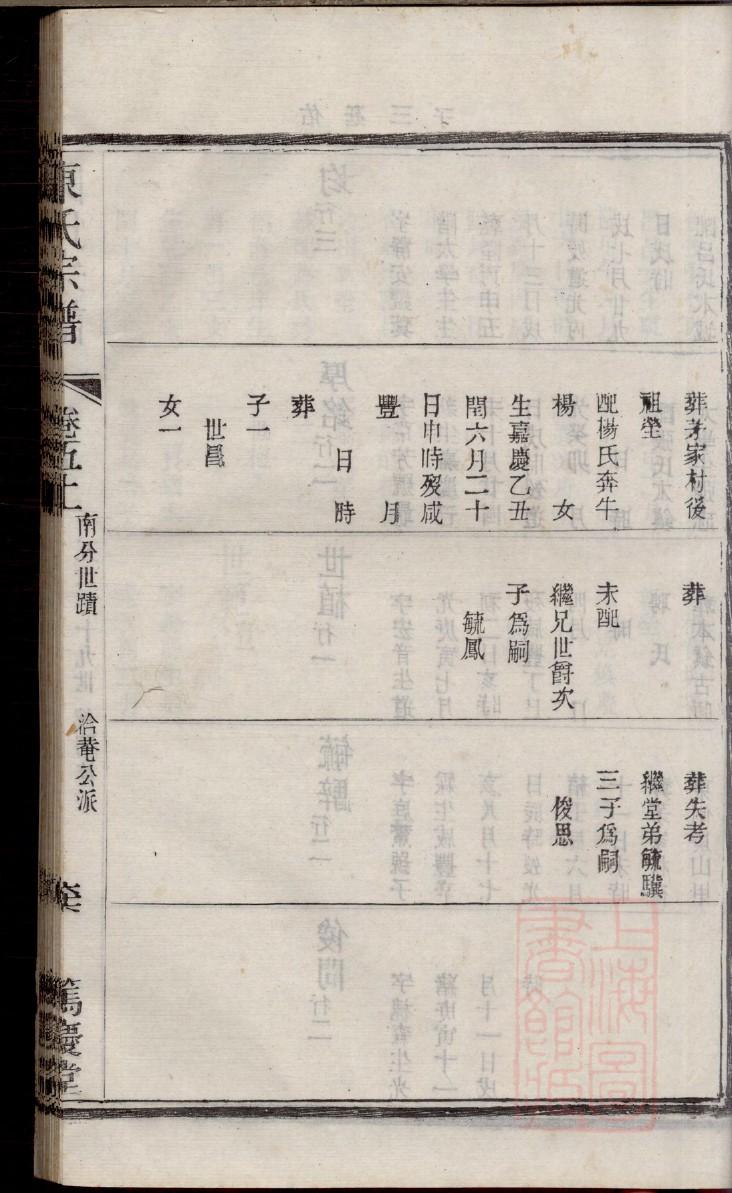 葬茅家村後
祖塋
配楊氏奔牛
楊　女
生嘉慶乙丑
閏六月二十
日申時歿咸
豐　月
日　時
葬
子一
世昌
女一
葬
未配
繼兄世爵次
子爲嗣
毓鳳
葬失考
繼堂弟毓驥
三子爲嗣
俊思
氏宗譜
卷五十
南分世蹟
十九世
洽菴公派
篤慶堂
上海圖
書館藏